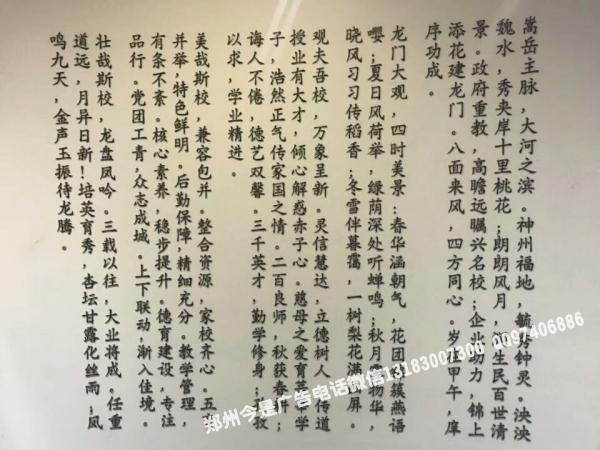 嵩岳主脉，大河之滨。神州福地，毓秀钟灵。泱泱
魏水，秀夹岸十里桃花；朗朗风月，生民百世清
景。政府重教，高瞻远瞩兴名校；企业助力，锦上
添花建龙门。八面来风，四方同心。岁在甲午，庠
序功成。
龙门大观，四时美景：春华涵朝气，花团锦簇燕语
嘤；夏日风荷举，绿荫深处听蝉鸣；秋月物华，
晓风习习传稻香；冬雪伴暮霭，一树梨花满屏。
观夫吾校，万象呈新。灵信慧达，立德树人。传道
授业有大才，倾心解惑赤子心。慈母之爱育莘莘学
子，浩然正气传家国之情。二百良师，秋获春耕；
诲人不倦，德艺双馨。三千英才，勤学修身；孜孜
以求，学业精进。
美哉斯校，兼容包并。整合资源，家校齐心。五育
并举，特色鲜明。后勤保障，精细充分。教学管理，
有条不紊。核心素养，稳步提升。德育建设，专注
品行。党团工青，众志成城。上下联动，渐入佳境。
壮哉斯校，龙盘凤吟。三载以往，大业将成。任重
道远，月异日新！培英育秀，杏坛甘露化丝雨；凤
鸣九天，金声玉振待龙腾。
郑州今是广告电话微信13183007300 QQ97406886